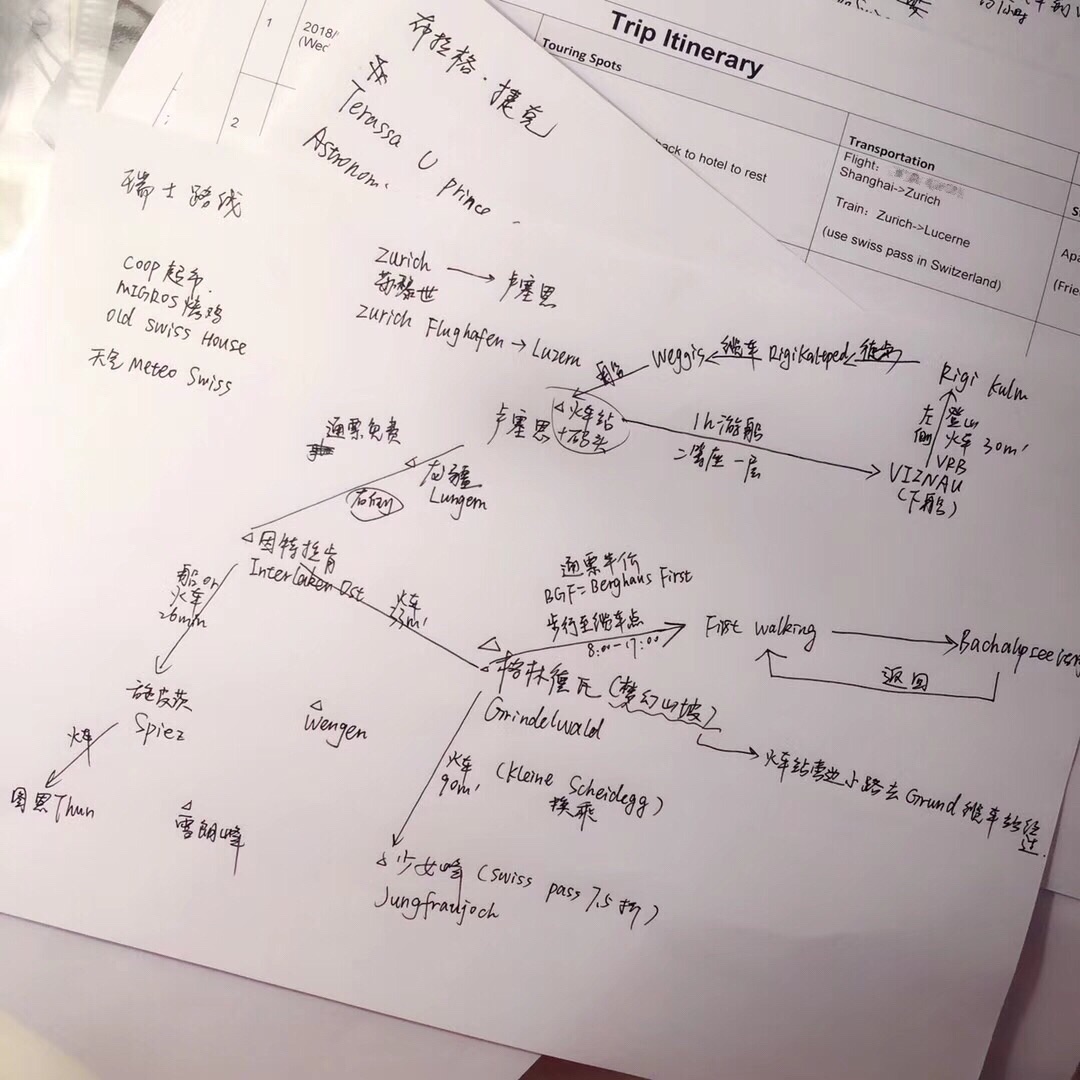 Trip Itinerary
1
2018/
(Wed
Touring Spots
2
back to hotel to rest
Transportation
Flight:
Shanghai->Zurich
Train: Zurich->Lucerne
(use swiss pass in Switzerland)
S
Apa
(Frie
布拉格·捷克
Terassa U prince
Astronom.
瑞士路线
COOP 起司.
MIGROS 烤鸡
Old Swiss House
天气 Meteo Swiss
Zurich → 卢塞恩
苏黎世
Zurich Flughafen → Luzern
Weggis
缆车
Rigi Kaltbad
徒步
Rigi Kulm
船
卢塞恩
火车站
+码头
1h游船
二等座 一层
左侧
登山火车 30m'
VRB
VIZNAU
(下船)
通票免费
龙疆
Lungern
右侧
因特拉肯
Interlaken Ost
船 or
火车
26min
火车
33m'
通票半价
BGF = Berghaus First
步行至缆车点
8:00-17:00
First walking
Bachalpsee
返回
格林德瓦 (梦幻山坡)
Grindelwald
火车站旁边小路去Grund缆车站经过.
施皮茨
Spiez
火车
图恩Thun
Wengen
雪朗峰
火车
90m'
(Kleine Scheidegg)
换乘
少女峰 (Swiss pass 7.5折)
Jungfraujoch